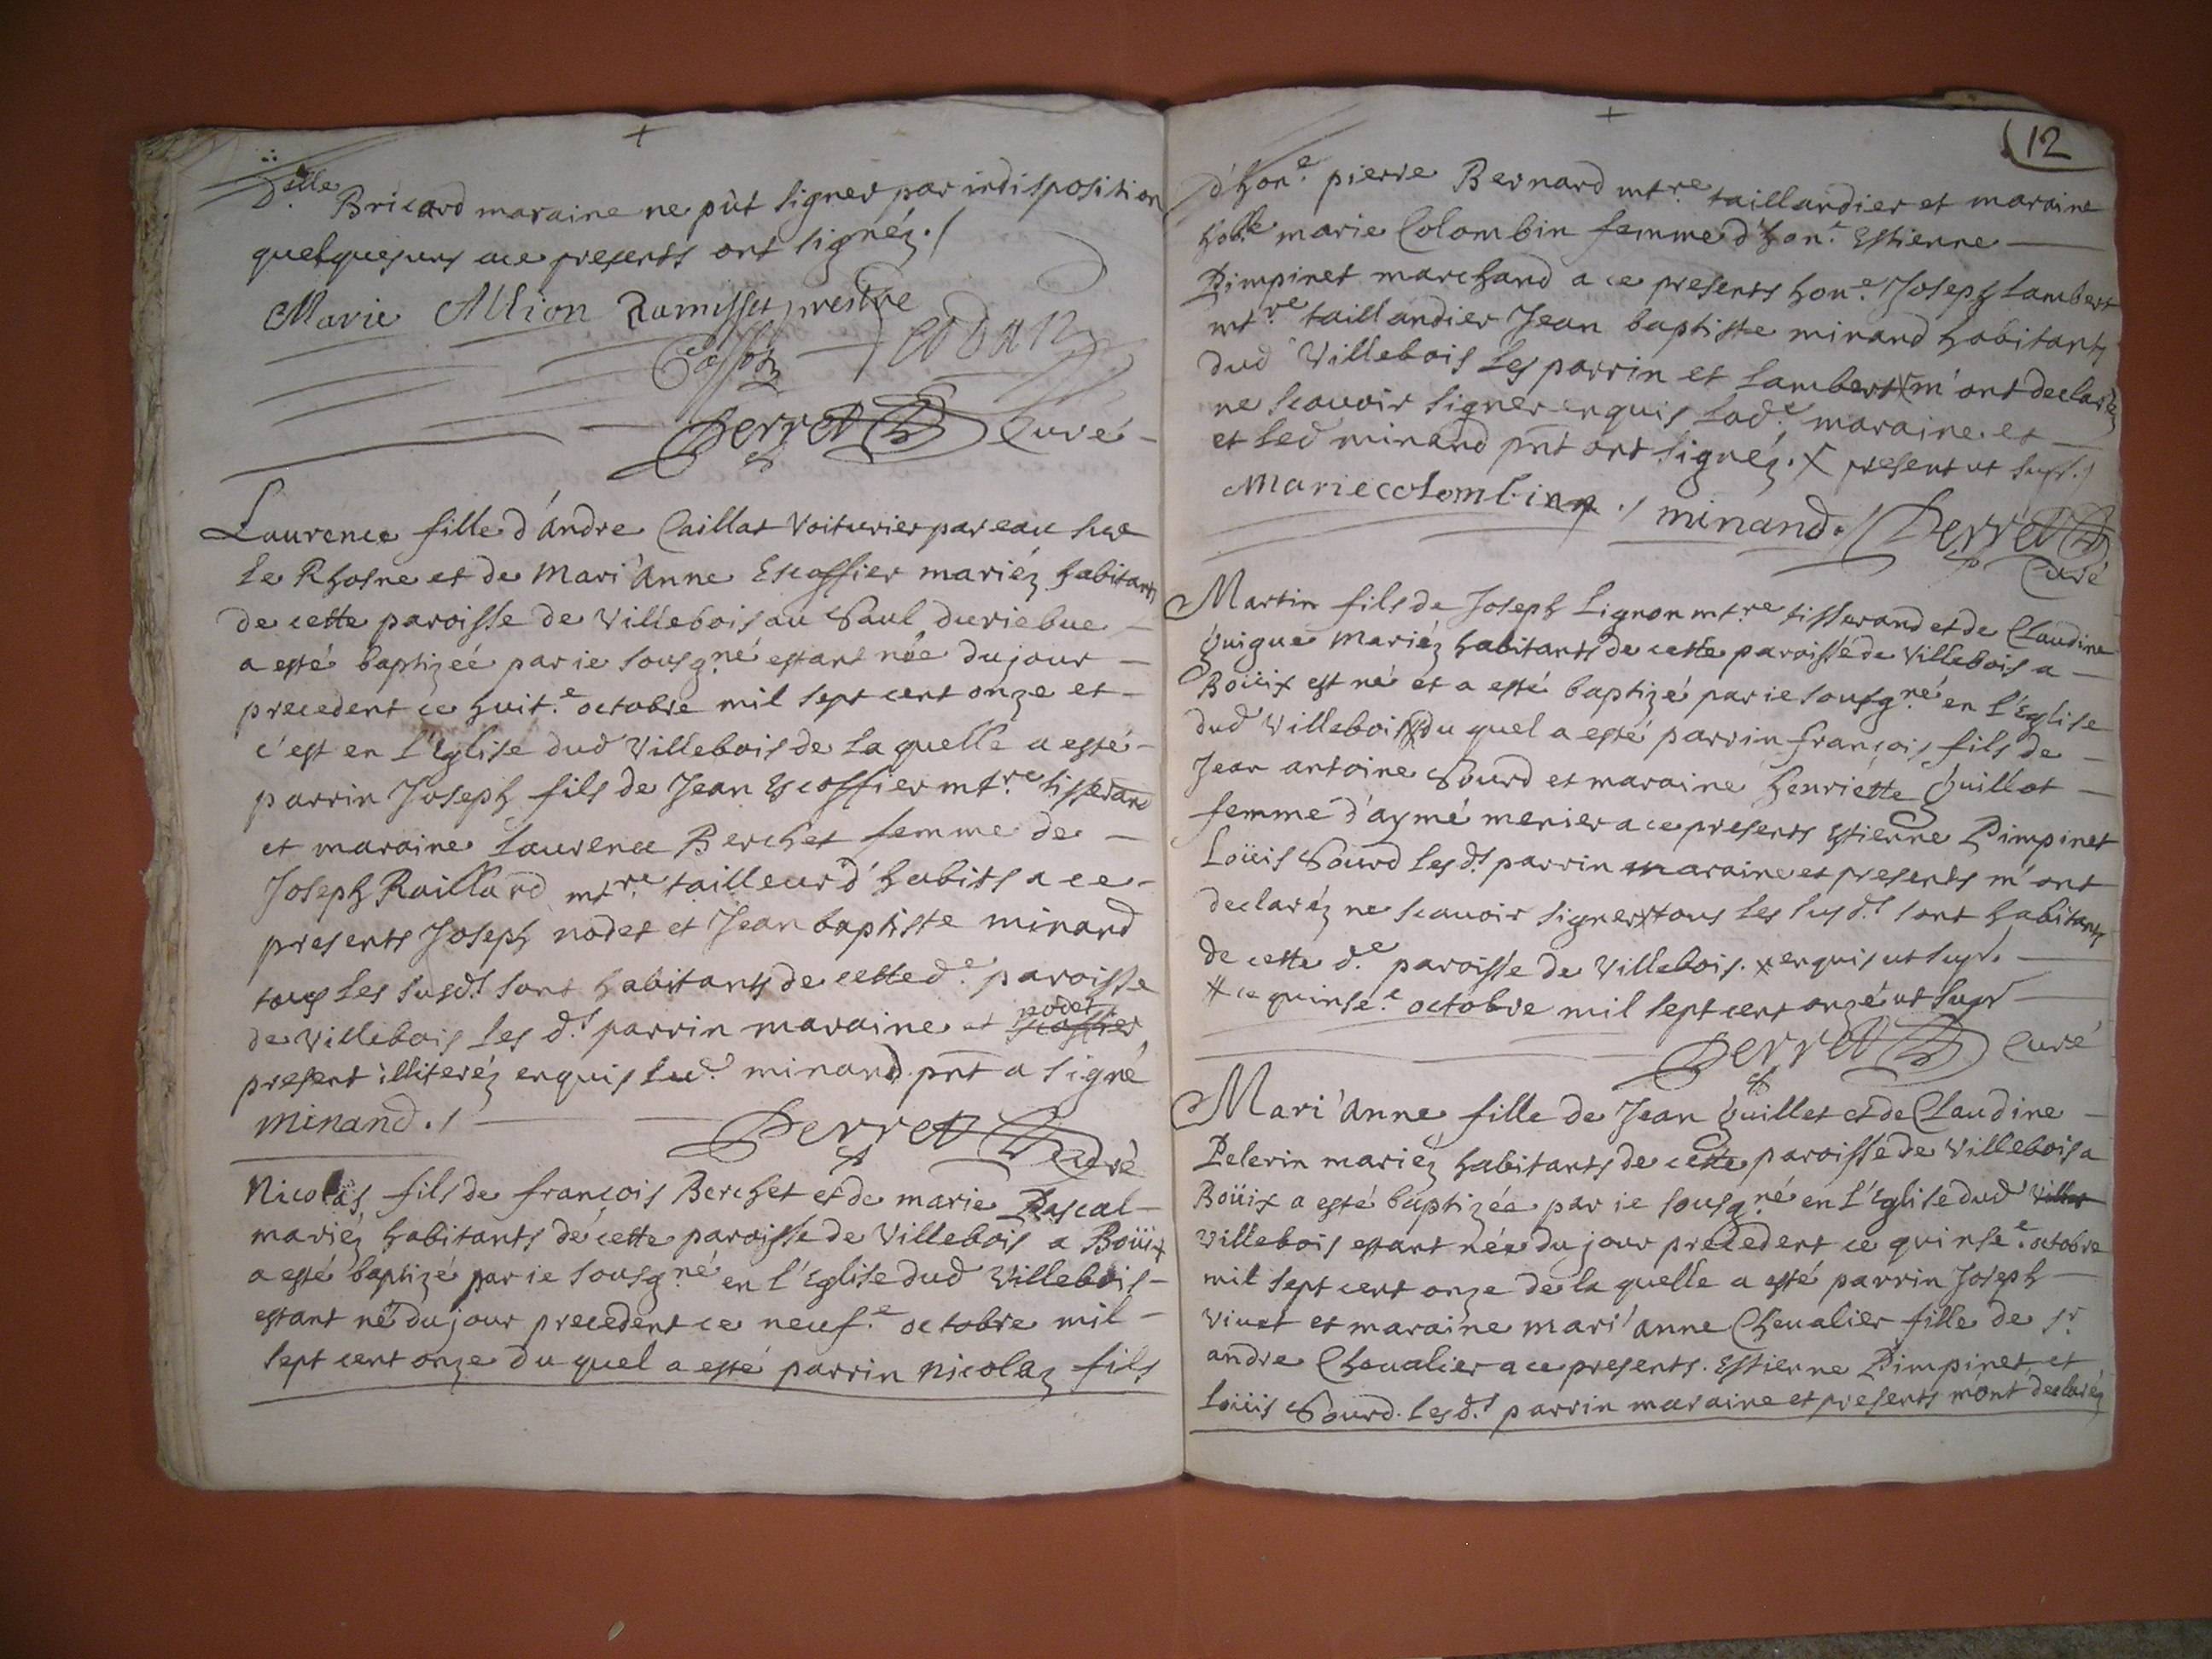 D.elle Bricard maraine ne pût signer par indisposition
quelquesuns a ce presents ont signéz./
Marie Allion Ramusset prestre
Perret Curé
Laurence fille d'andre Caillat Voiturier par eau sur
le Rhosne et de Mari'Anne Escoffier mariéz habitants
de cette paroisse de Villebois au Saul duriebue
a esté baptizeé par ie sousg.né estant née du jour
precedent ce huit.e octobre mil sept cent onze et
c'est en l'Eglise dud Villebois de la quelle a esté
parrin Joseph fils de Jean Escoffier mt.re tisserand
et maraine Laurence Berchet femme de
Joseph Raillard mt.re tailleur d'habits a ce
presents Joseph nodet et Jean baptiste minand
tous les susd.s sont habitants de cette d.e paroisse
de Villebois les d.s parrin maraine et nodet
present illiteréz enquis led.t minand pnt a signé
minand./ Perret Curé
Nicolas fils de françois Berchet et de marie Pascal
mariéz habitants de cette paroisse de Villebois a Boüix
a esté baptizé par ie sousg.né en l'Eglise dud Villebois
estant né du jour precedent ce neuf.e octobre mil
sept cent onze du quel a esté parrin nicolaz fils
12
d'hon.e pierre Bernard mt.re taillandier et maraine
hon.lle marie Colombin femme d'hon.e Estienne
Pimpinet marchand a ce presents hon.e Joseph Lambert
mt.re taillandier Jean baptiste minand habitants
dud Villebois les parrin et Lambert x m'ont declaréz
ne scauoir signer enquis lad.e maraine et
et led minand pnt ont signéz. x present ut sup./
Marie colombin ./ minand./ Perret
Curé
Martin fils de Joseph Lignon mt.re tisserand et de Claudine
Guigue mariéz habitants de cette paroisse de Villebois a
Boüix est né et a esté baptizé par ie sousg.né en l'Eglise
dud Villebois x du quel a esté parrin françois fils de
Jean antoine Sourd et maraine henriette Guillot
femme d'aymé menier a ce presents Estienne Pimpinet
Loüis Sourd les d.s parrin maraine et presents m'ont
declaréz ne scauoir signer x tous les sus d.s sont habitants
de cette d.e paroisse de Villebois. x enquis ut sup.
x ce quinse.e octobre mil sept cent onze ut sup
Perret Curé
Mari'Anne fille de Jean Guillet et de Claudine
Pelerin mariéz habitants de cette paroisse de Villebois a
Boüix a esté baptizée par ie sousg.né en l'Eglise dud
Villebois estant née du jour precedent ce quinse.e octobre
mil sept cent onze de la quelle a esté parrin Joseph
Viuet et maraine mari'anne Cheualier fille de s.r
andre Cheualier a ce presents. Estienne Pimpinet et
Loüis Sourd. les d.s parrin maraine et presents m'ont declaréz